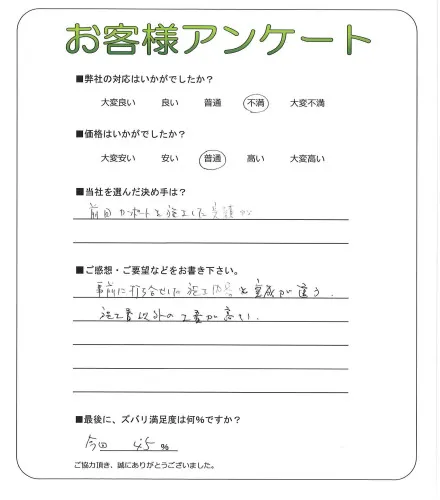 お客様アンケート
■弊社の対応はいかがでしたか?
大変良い 良い 普通 不満 大変不満
■価格はいかがでしたか?
大変安い 安い 普通 高い 大変高い
■当社を選んだ決め手は?
前回カーポートを施工した実績から
■ご感想・ご要望などをお書き下さい。
事前に打ち合せした施工内容と完成が違う.
施工費以外の工費が高い.
■最後に、ズバリ満足度は何%ですか?
今回 45%
ご協力頂き、誠にありがとうございました。